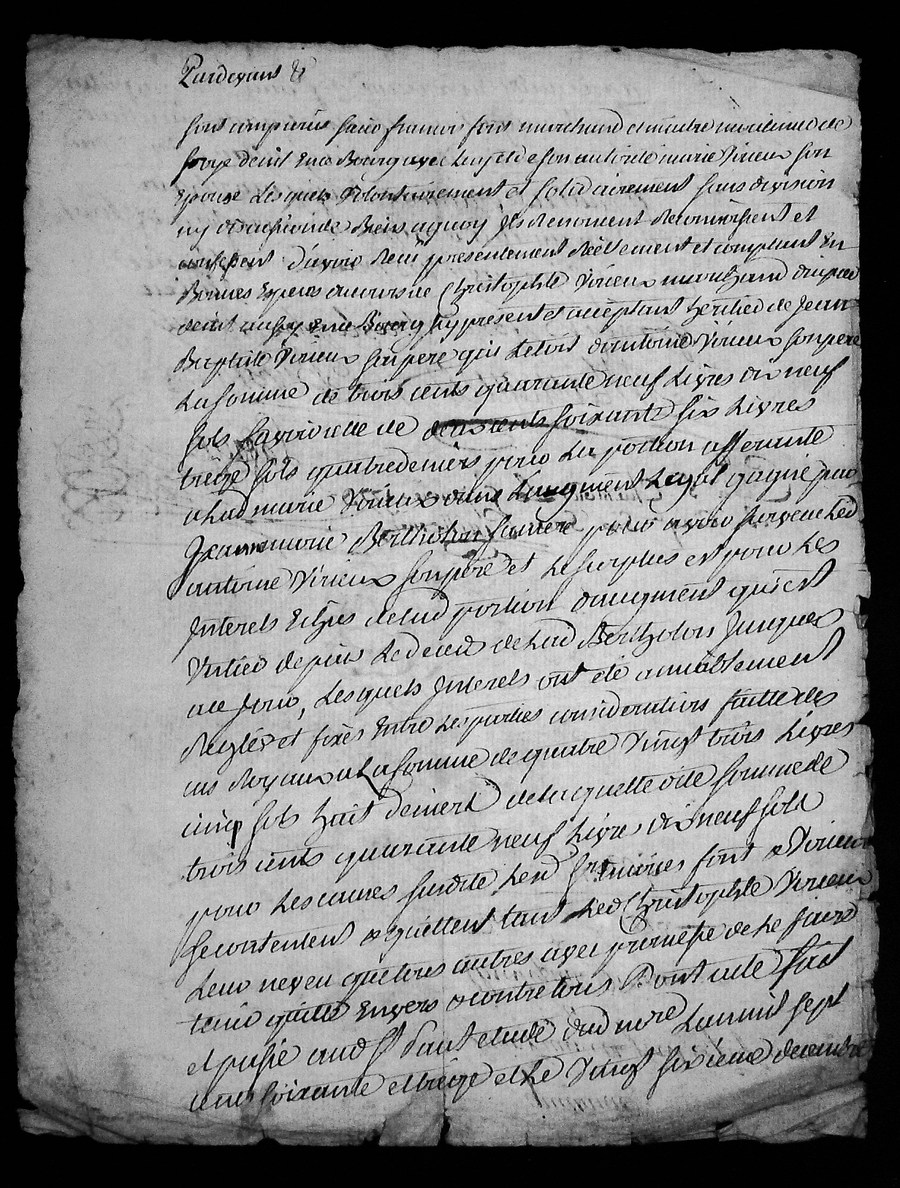 Pardevant &
sont comparus sieur francois font marchand et maitre moulineur de
soye de cit Enca Bourg avec Luy et de son autorité marie Virieux son
Epouse Lesquels Volontairement et solidairement sans division
ny discussion de Biens aquoy Ils Renoncent Reconnoissent et
confessent d'avoir Reçu présentement Réellement et comptant En
Bonnes Espèces ducours de Christophle Virieux marchand drapier
de cit aussy Enca Bourg Icy present et acceptant heritier de Jean
Baptiste Virieux son pere qui Letoit d'antoine Virieux son pere
La somme de trois cents quarante neuf Livres dix neuf
sols Savoir celle de deux cents soixante six Livres
treize sols quatre deniers pour La portion afferante
a Lad marie Virieux dans Laugment Légal gagné par
Jeanne marie Bertholon sa mere pour avoir survecu Led
antoine Virieux son pere et Le surplus est pour Les
Interets Echus de lad portion d'augment qui ont
Couru depuis Le deces de Lad Bertholon Jusques
a ce jour, Lesquels Interets ont été amiablement
Reglés et fixés Entre Les parties consideration faitte des
cas Royaux a La somme de quatre Vingt trois Livres
cinq sols huit deniers de laquelle ditte somme de
trois cents quarante neuf Livres dix neuf sols
pour Les causes susditte Lesd mariés font & Virieux
se contentent & quittent tant Led Christophle Virieux
Leur neveu que tous autres avec promesse de Le faire
tenir quitte Envers & contre tous Dont acte fait
et passé aud Bourg Etude dud nore Lan mil sept
cent soixante et treize et Le Vingt sixieme decembre